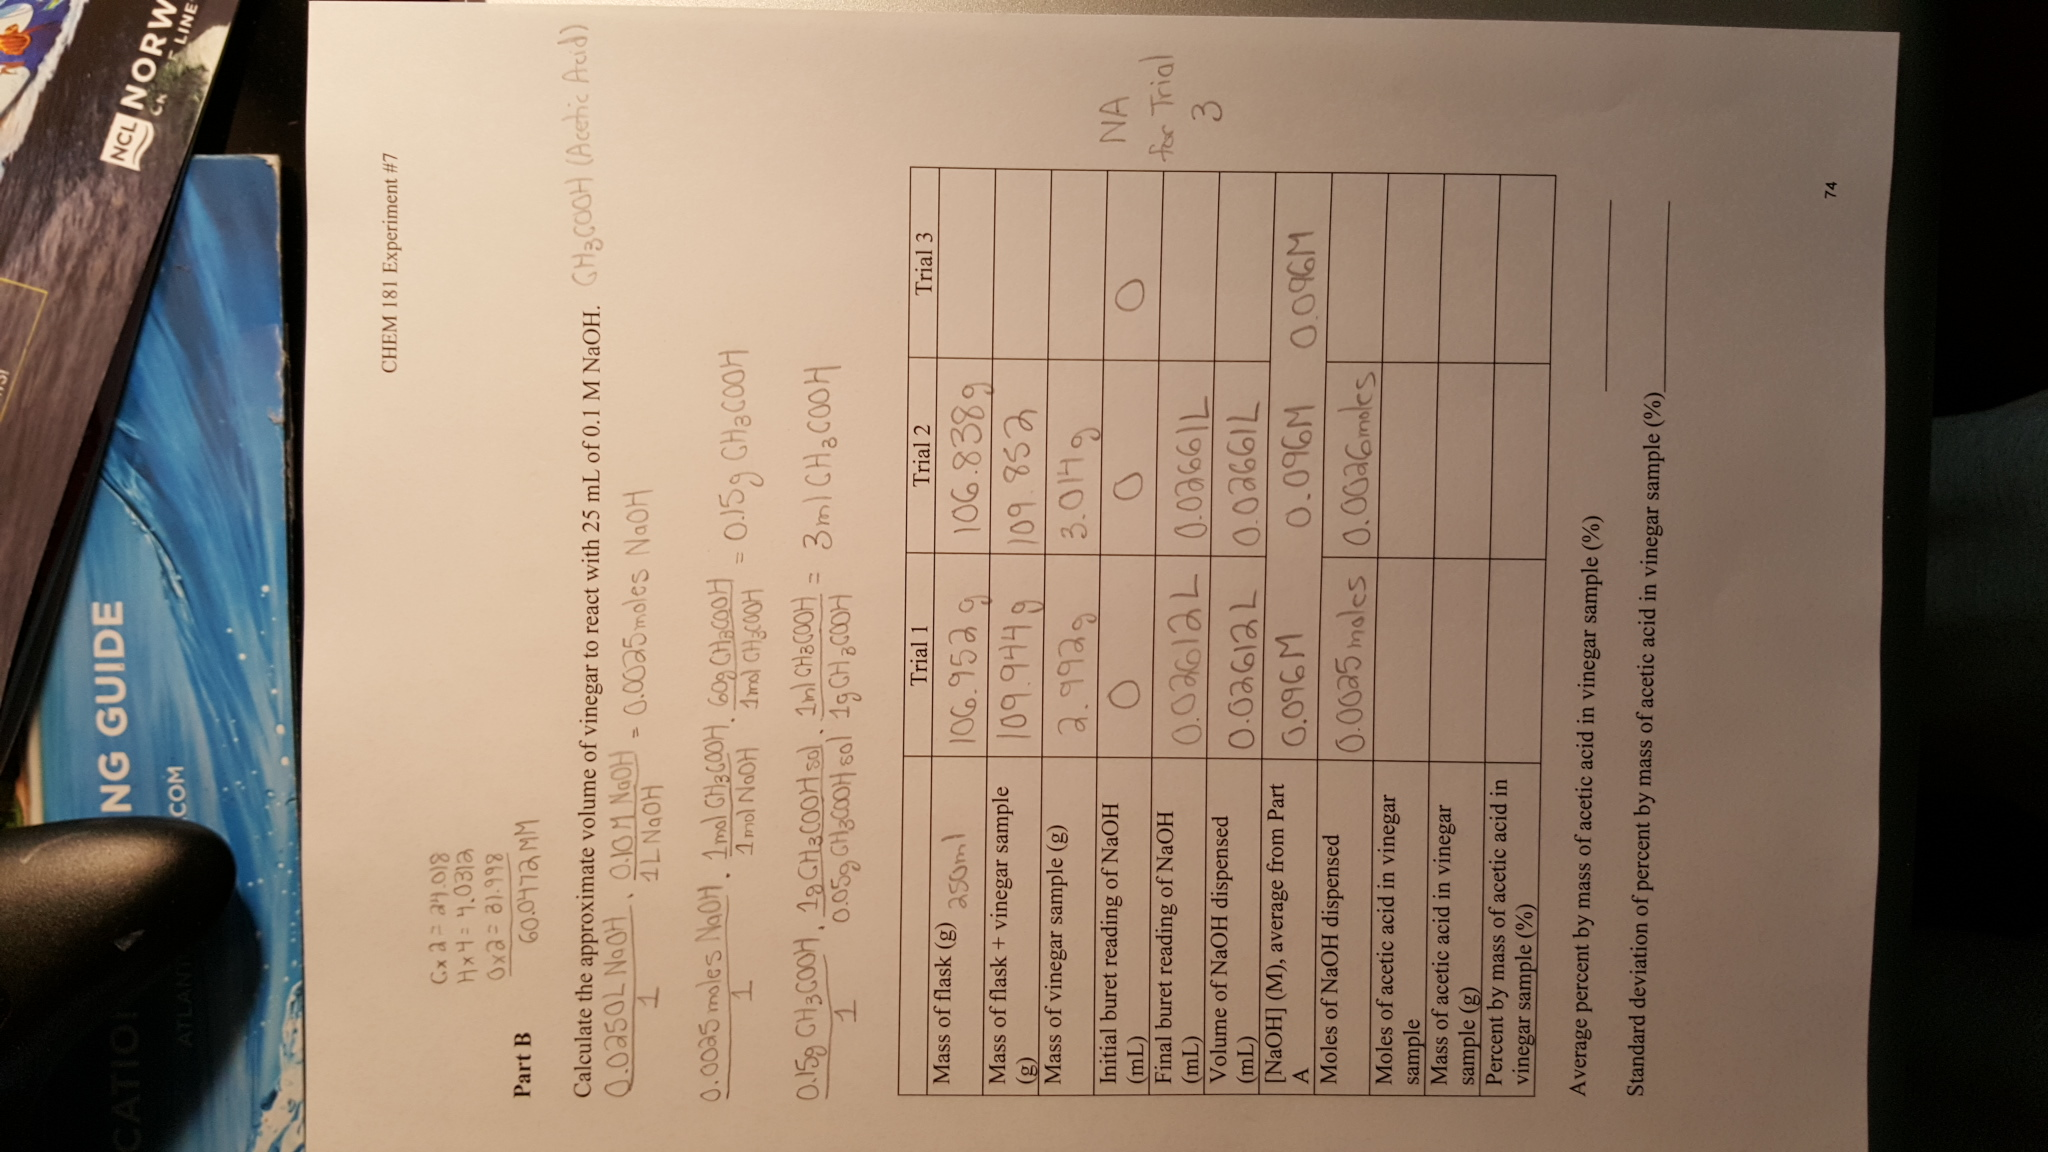 NCL NORW
LINE
NG GUIDE
.COM
CATION
ATLAN
CHEM 181 Experiment #7
C x 2 = 24.018
H x 4 = 4.0312
O x 2 = 31.998
60.0472 MM
Part B
Calculate the approximate volume of vinegar to react with 25 mL of 0.1 M NaOH. CH3COOH (Acetic Acid)
0.0250L NaOH . 0.10 M NaOH = 0.0025 moles NaOH
1 1L NaOH
0.0025 moles NaOH . 1 mol CH3COOH . 60g CH3COOH = 0.15g CH3COOH
1 1 mol NaOH 1 mol CH3COOH
0.15g CH3COOH . 1g CH3COOH sol . 1ml CH3COOH = 3ml CH3COOH
1 0.05g CH3COOH sol 1g CH3COOH
Trial 1 Trial 2 Trial 3
Mass of flask (g) 250ml 106.952g 106.838g
Mass of flask + vinegar sample 109.944g 109.852
(g)
Mass of vinegar sample (g) 2.992g 3.014g
Initial buret reading of NaOH 0 0 0 NA
(mL)
Final buret reading of NaOH 0.02612L 0.02661L for Trial
(mL)
3
Volume of NaOH dispensed 0.02612L 0.02661L
(mL)
[NaOH] (M), average from Part 0.096M 0.096M 0.096M
A
Moles of NaOH dispensed 0.0025 moles 0.0026 moles
Moles of acetic acid in vinegar
sample
Mass of acetic acid in vinegar
sample (g)
Percent by mass of acetic acid in
vinegar sample (%)
Average percent by mass of acetic acid in vinegar sample (%)
Standard deviation of percent by mass of acetic acid in vinegar sample (%)
74